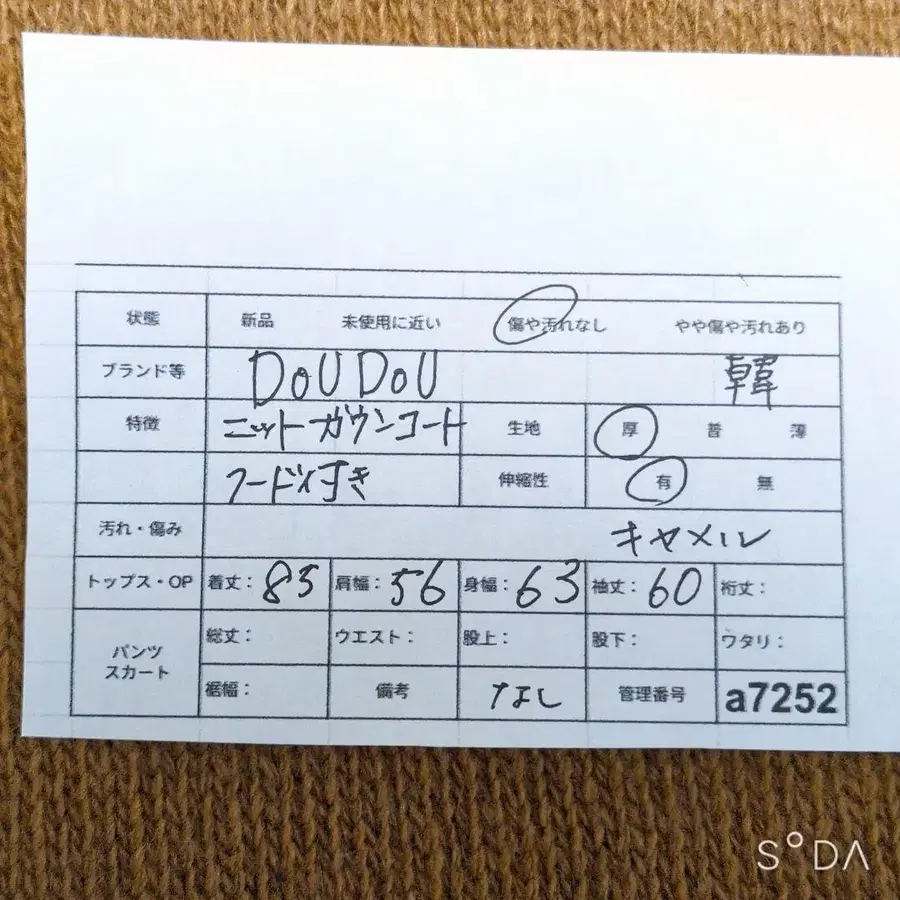 状態 新品 未使用に近い 傷や汚れなし やや傷や汚れあり
ブランド等 DOUDOU 韓
特徴 ニットガウンコート 生地 厚 普 薄
フード付き 伸縮性 有 無
汚れ・傷み キャメル
トップス・OP 着丈：85 肩幅：56 身幅：63 袖丈：60 裄丈：
パンツ スカート 総丈： ウエスト： 股上： 股下： ワタリ：
裾幅： 備考 なし 管理番号 a7252
SODA